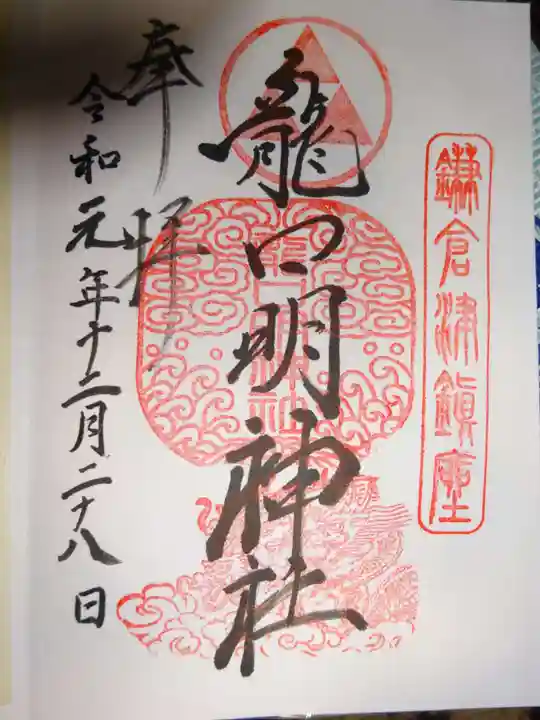 鎌倉津鎮座
龍口明神社
奉拝
令和元年十二月二十八日
龍口明神社